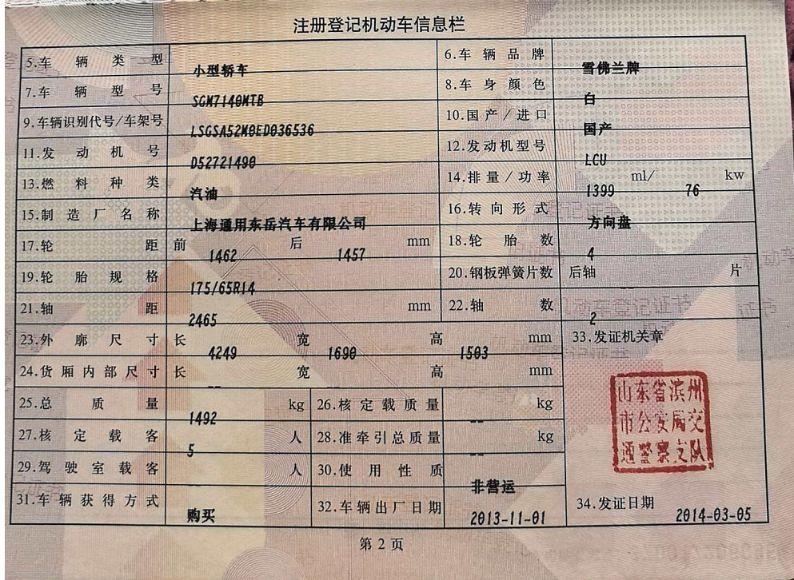 注册登记机动车信息栏
5.车辆类型 小型轿车 6.车辆品牌 雪佛兰牌
7.车辆型号 SGM7140MTB 8.车身颜色 白
9.车辆识别代号/车架号 LSGSA52M0ED036536 10.国产/进口 国产
11.发动机号 D52721490 12.发动机型号 LCU
13.燃料种类 汽油 14.排量/功率 1399 ml/ 76 kw
15.制造厂名称 上海通用东岳汽车有限公司 16.转向形式 方向盘
17.轮距 前 1462 后 1457 mm 18.轮胎数 4
19.轮胎规格 175/65R14 20.钢板弹簧片数 后轴 片
21.轴距 2465 mm 22.轴数 2
23.外廓尺寸 长 4249 宽 1690 高 1503 mm 33.发证机关章
24.货厢内部尺寸 长 -- 宽 高 mm
25.总质量 1492 kg 26.核定载质量 -- kg
27.核定载客 5 人 28.准牵引总质量 -- kg
29.驾驶室载客 -- 人 30.使用性质 非营运
31.车辆获得方式 购买 32.车辆出厂日期 2013-11-01 34.发证日期 2014-03-05
山东省滨州
市公安局交
通警察支队
第2页